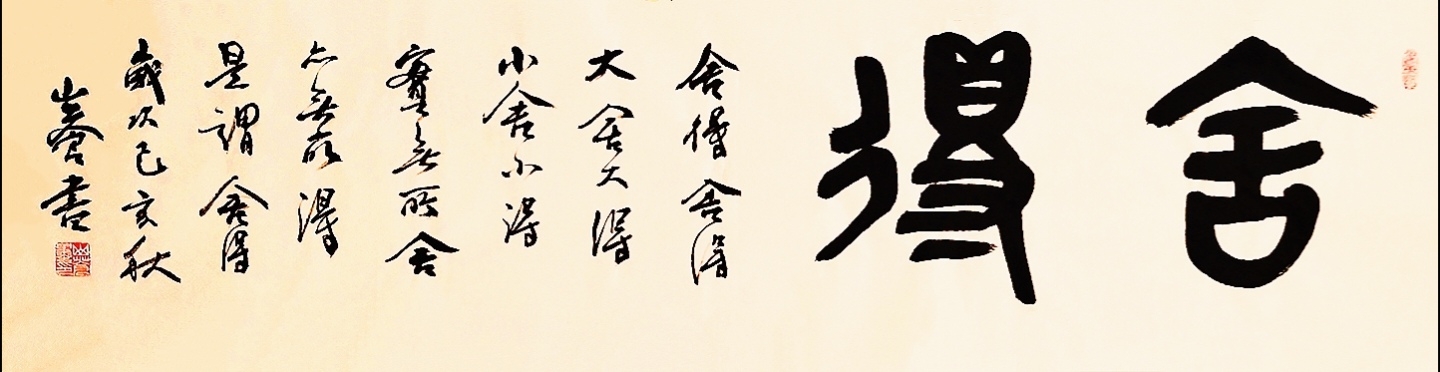 舍得
舍得舍得
大舍大得
小舍小得
實無所舍
亦無所得
是謂舍得
歲次己亥秋
書